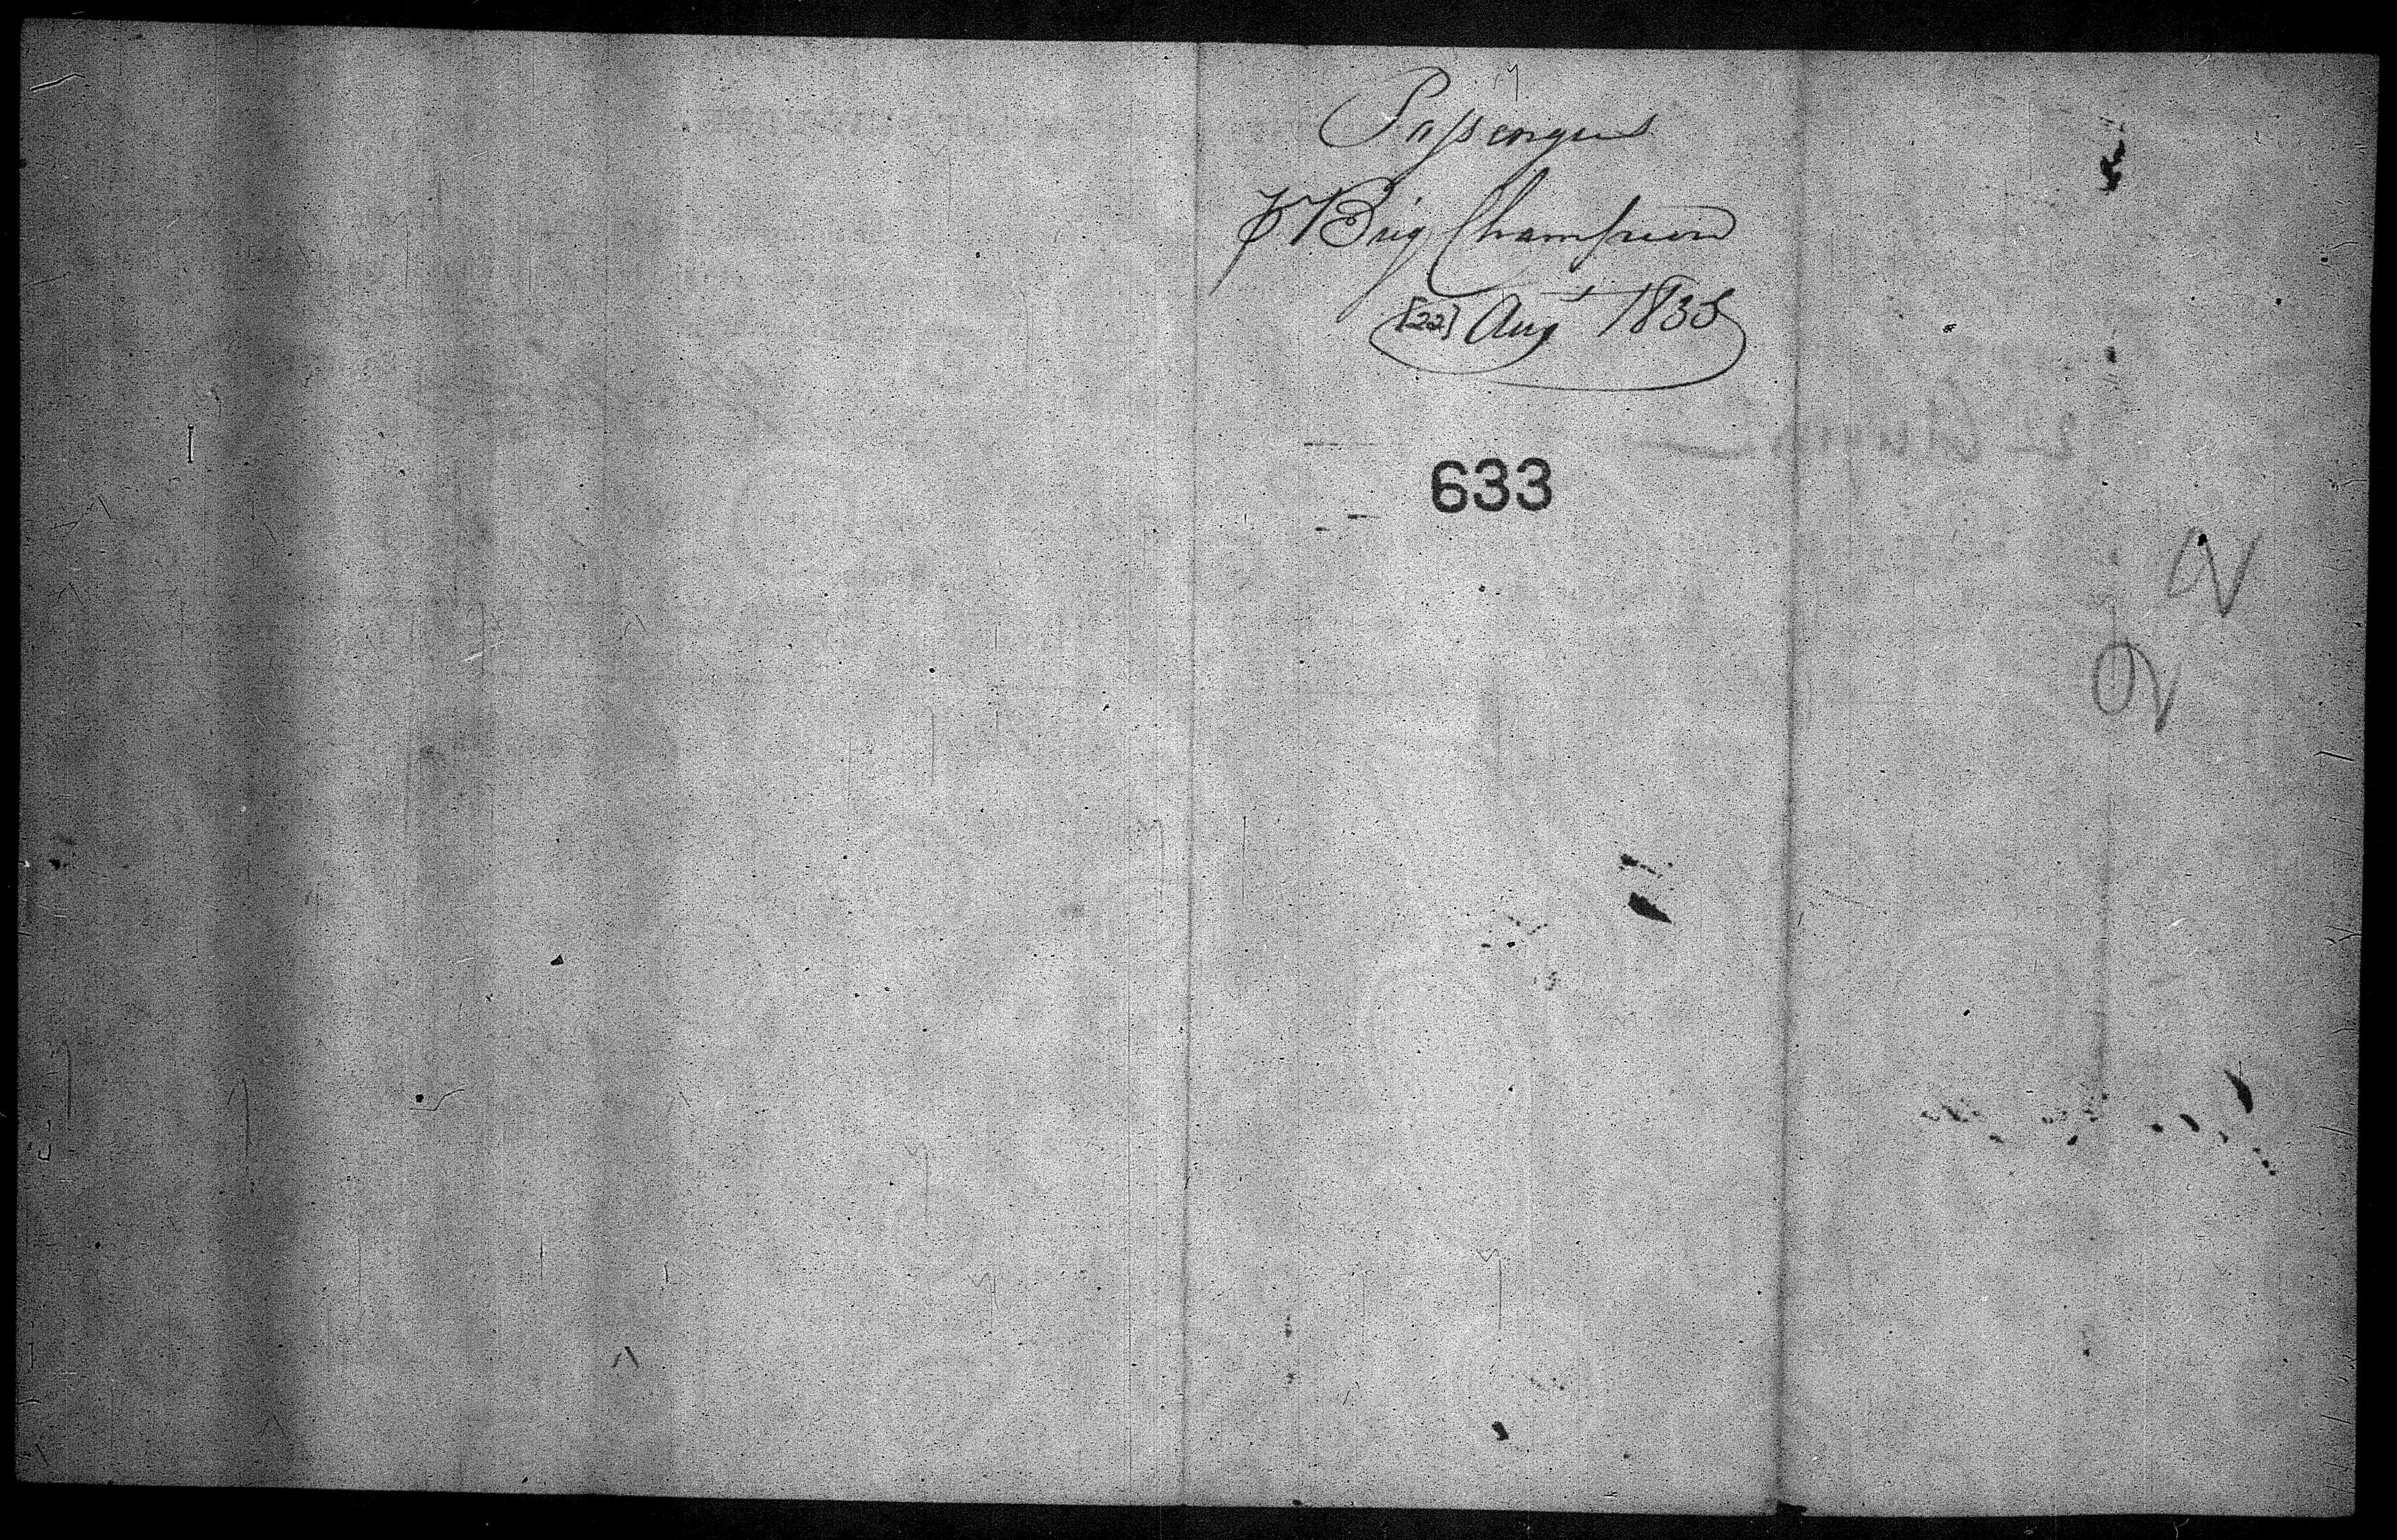 Passengers
⅌ Brig Champion
[22] Augt 1835
633